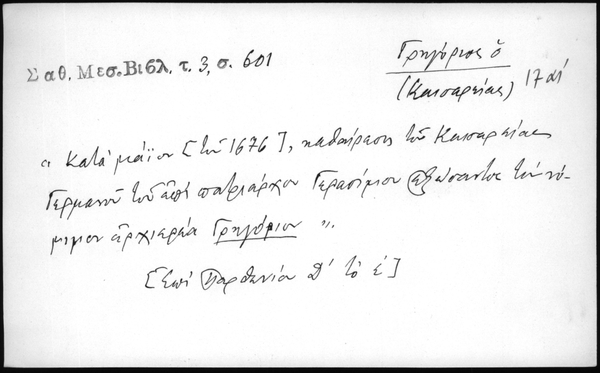 Σαθ. Μεσ.Βιβλ. τ. 3, σ. 601
Γρηγόριος ὁ
(Καισαρείας) 17 αἰ
"Κατὰ μάϊον [τοῦ 1676], καθαίρεσις τοῦ Καισαρείας
Γερμανοῦ τοῦ ἐπὶ πατριάρχου Γερασίμου ἐξώσαντος τὸν νό-
μιμον ἀρχιερέα Γρηγόριον".
[Ἐπὶ Παρθενίου Δ' τὸ ε']